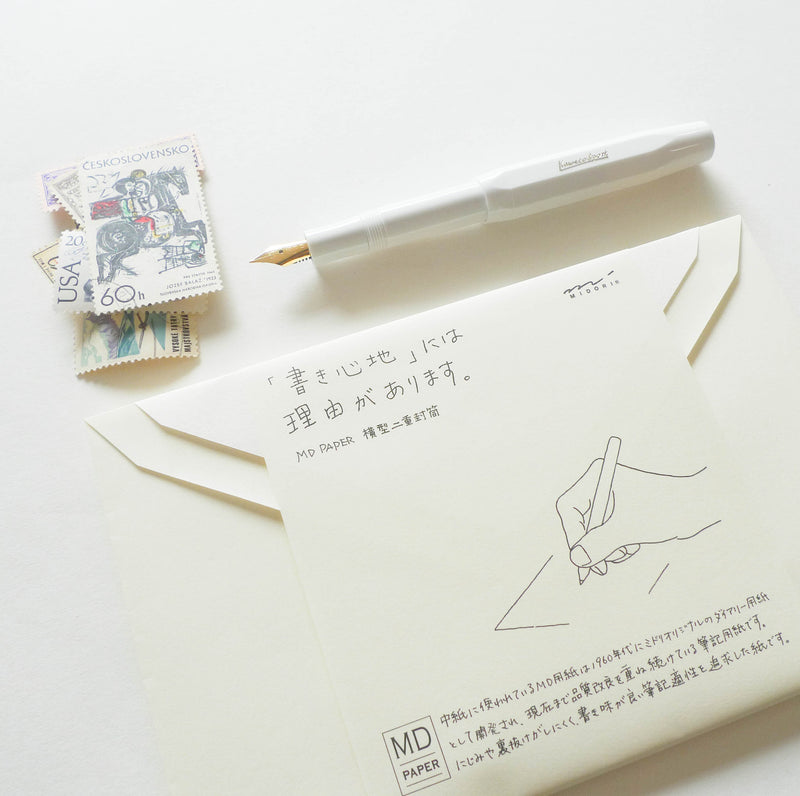 ČESKOSLOVENSKO
60h
JOZEF BALÁŽ 1982
20
USA
VYSOKÉ TATRY
MAJSTROVSTVÁ
kaweco Sport
MIDORI
「書き心地」には
理由があります。
MD PAPER 横型二重封筒
中紙に使われているMD用紙は1960年代にミドリオリジナルのダイアリー用紙
として開発され、現在まで品質改良を重ね続けている筆記用紙です。
にじみや裏抜けがしにくく、書き味が良い筆記適性を追求した紙です。
MD
PAPER